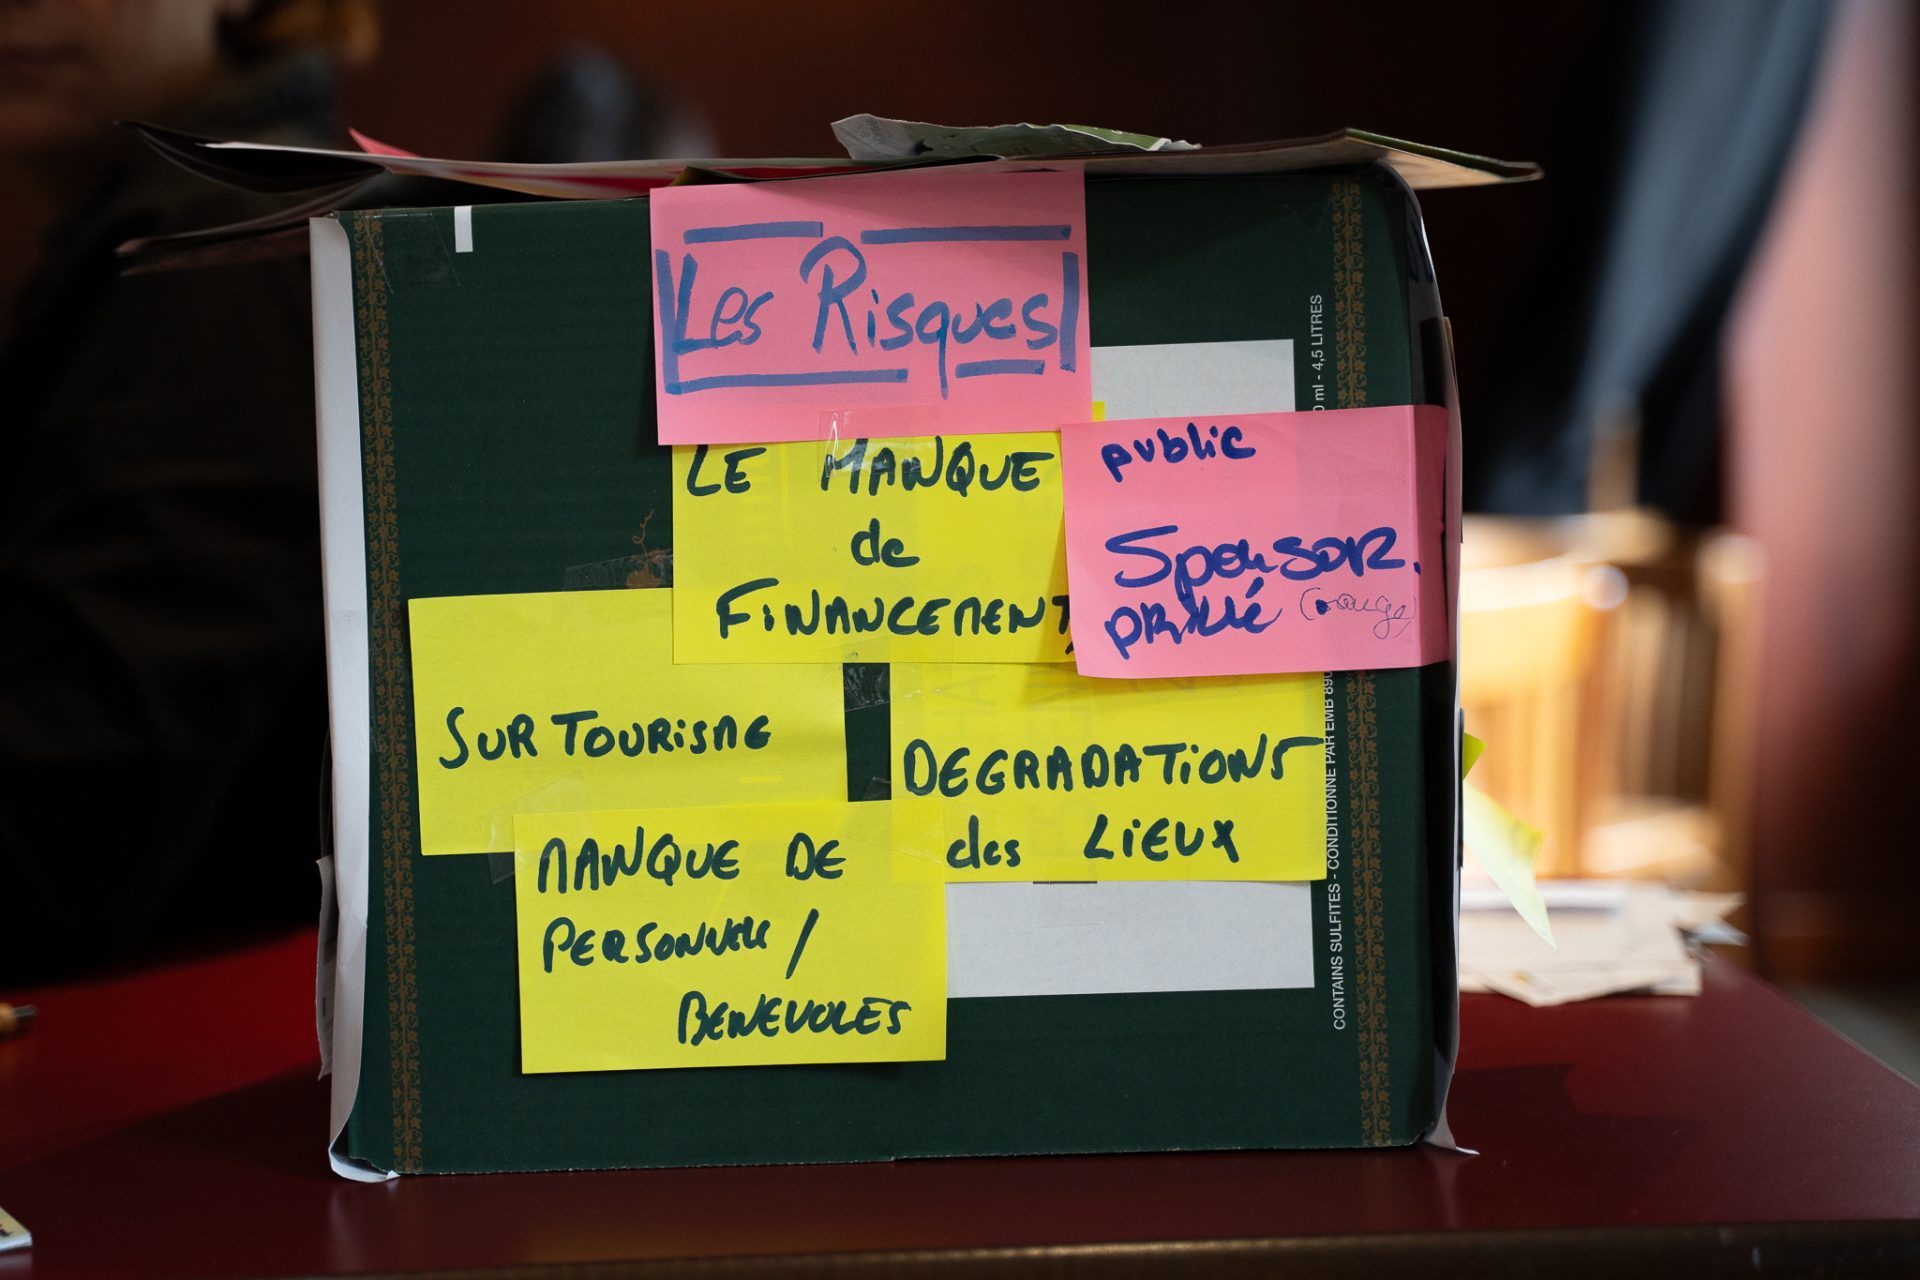 Les Risques
LE MANQUE
de
FINANCEMENT
public
Sponsor
privé (orange)
SURTOURISME
DEGRADATIONS
des LIEUX
MANQUE DE
PERSONNEL /
BENEVOLES
CONTAINS SULFITES - CONDITIONNE PAR EMB 890
0 ml - 4,5 LITRES